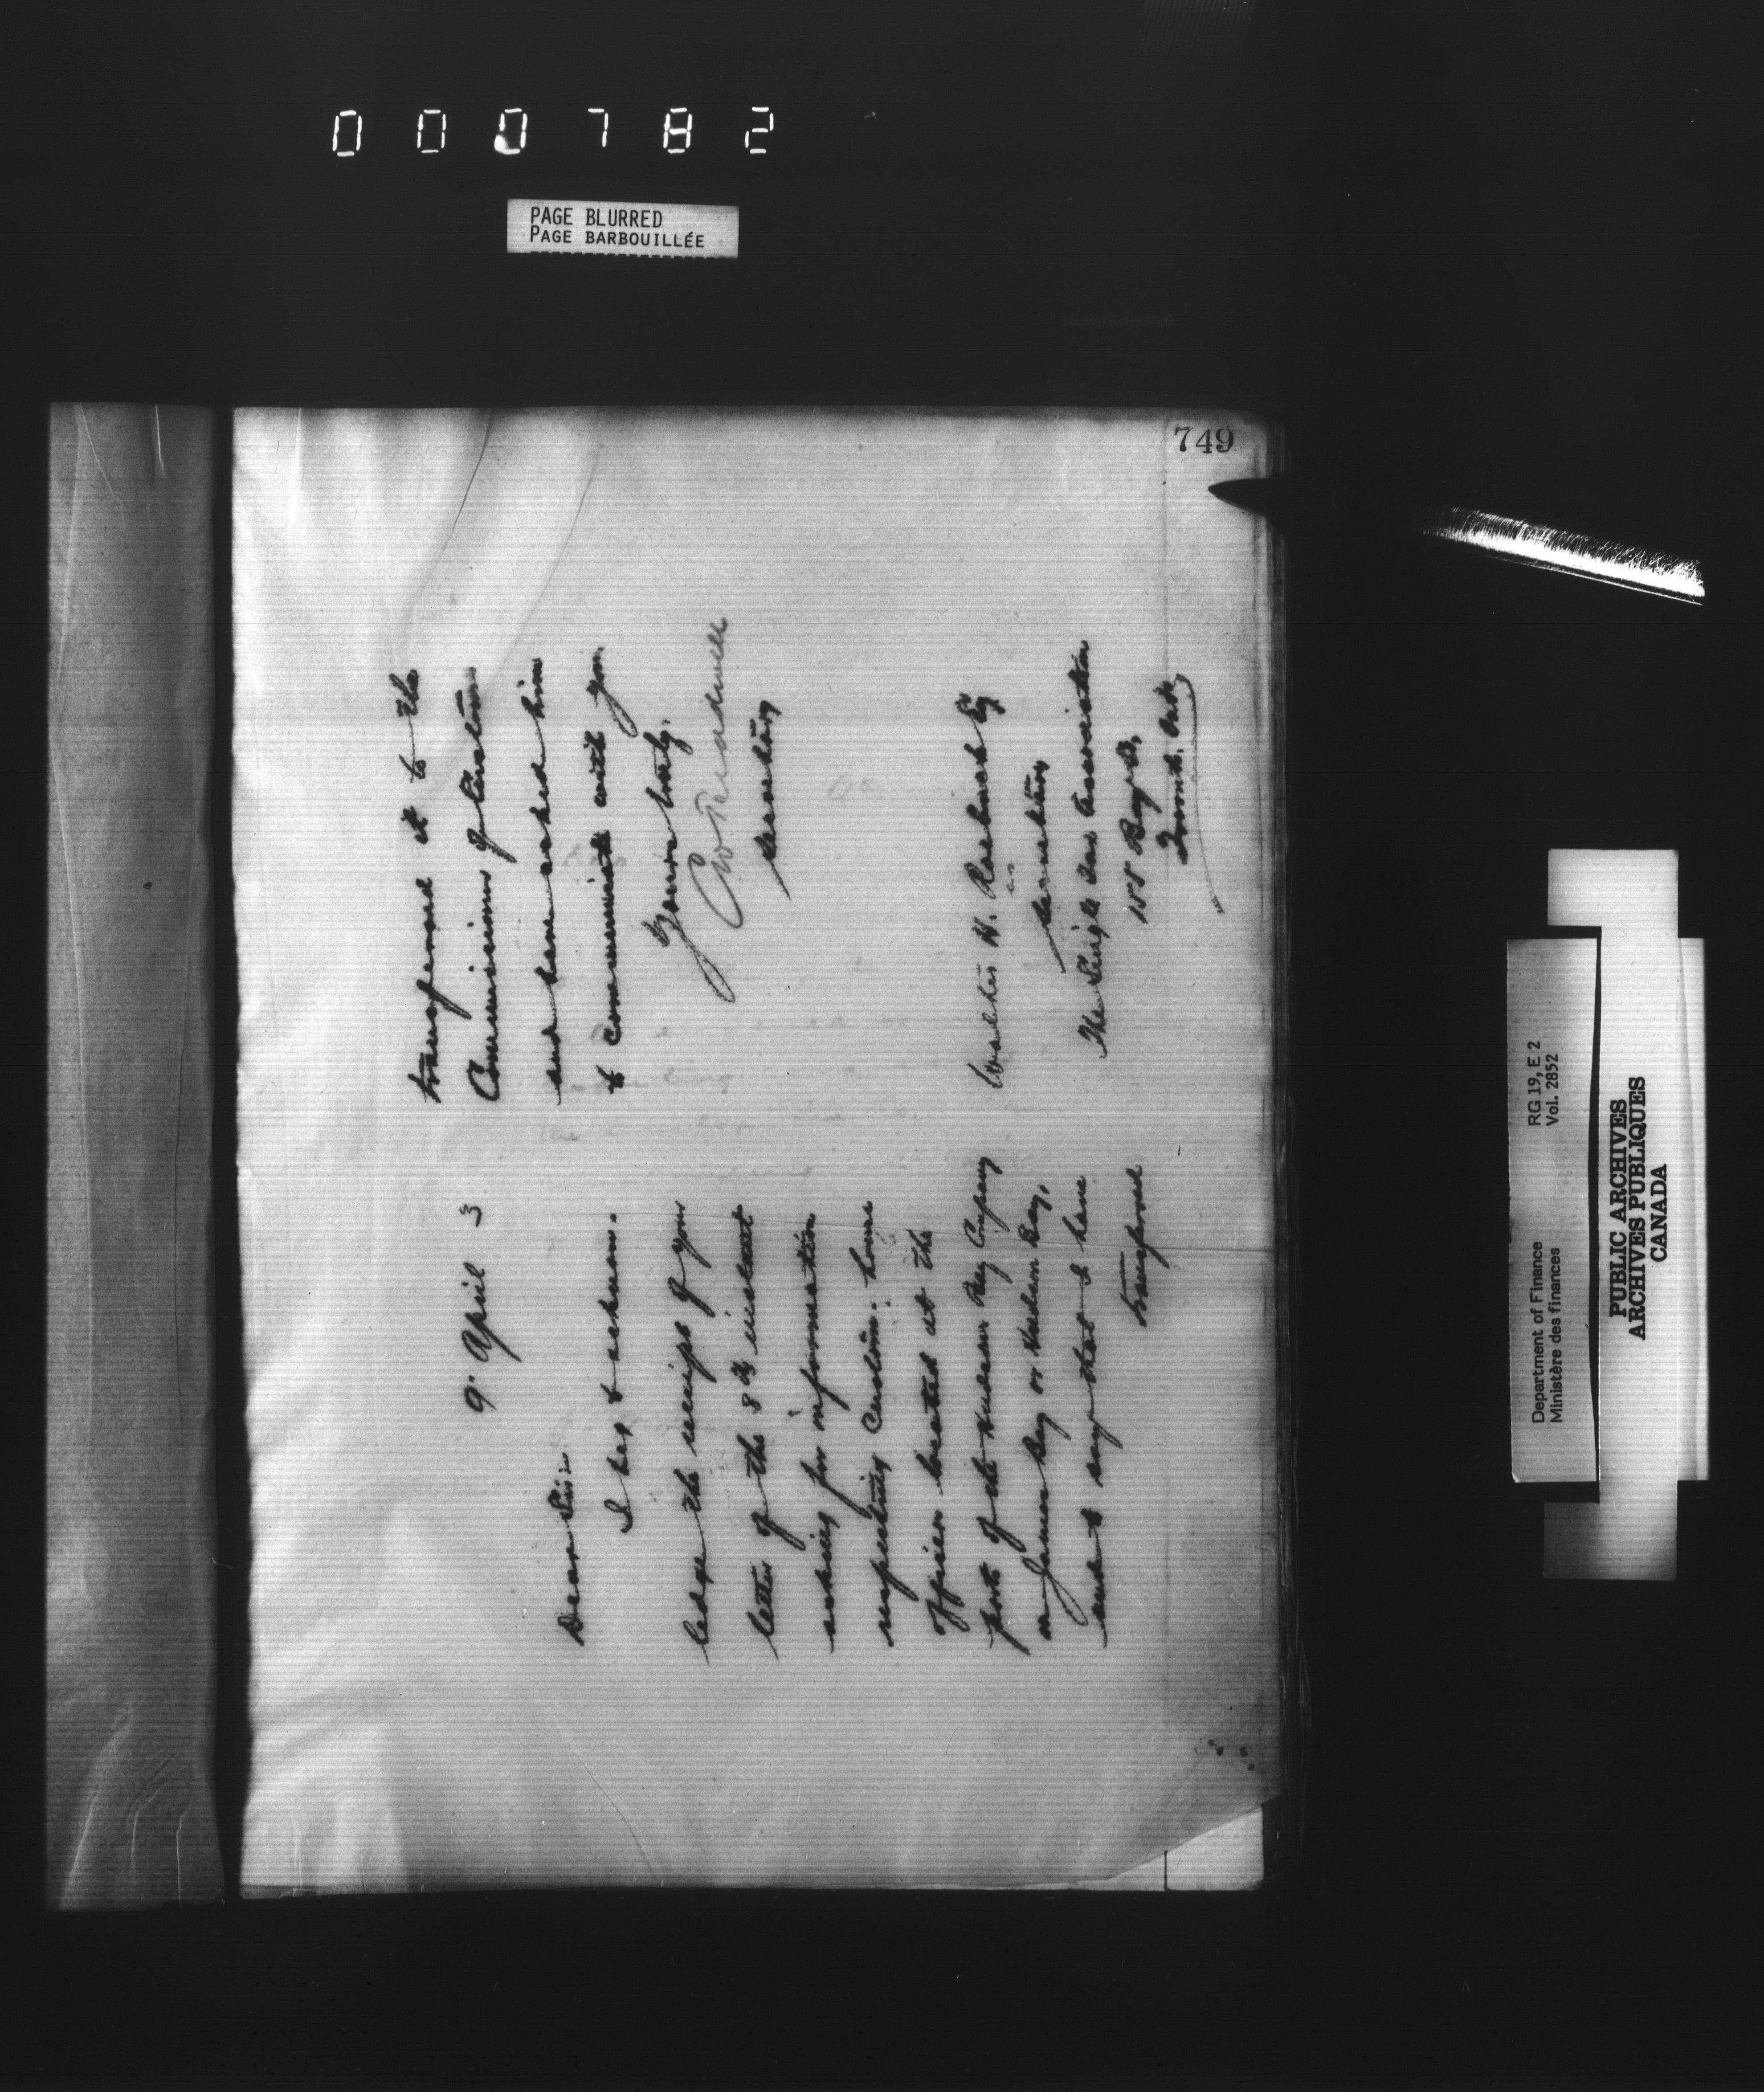 000782
PAGE BLURRED
PAGE BARBOUILLÉE
749
9 April 3
Dear Sir:
I beg to acknow-
ledge the receipt of your
letter of the 8th instant
asking for information
respecting Customs house
officers located at the
posts of the Hudson Bay Company
on James Bay or Hudson Bay,
and to say that I have
transferred
transferred it to the
Commissioner of Customs
and have asked him
to communicate with you.
Yours truly,
Secretary
Walter H. Roebuck Esq
Secretary
The Single Tax Association
155 Bay St,
Toronto, Ont
Department of Finance RG 19, E 2
Ministère des finances Vol. 2852
PUBLIC ARCHIVES
ARCHIVES PUBLIQUES
CANADA